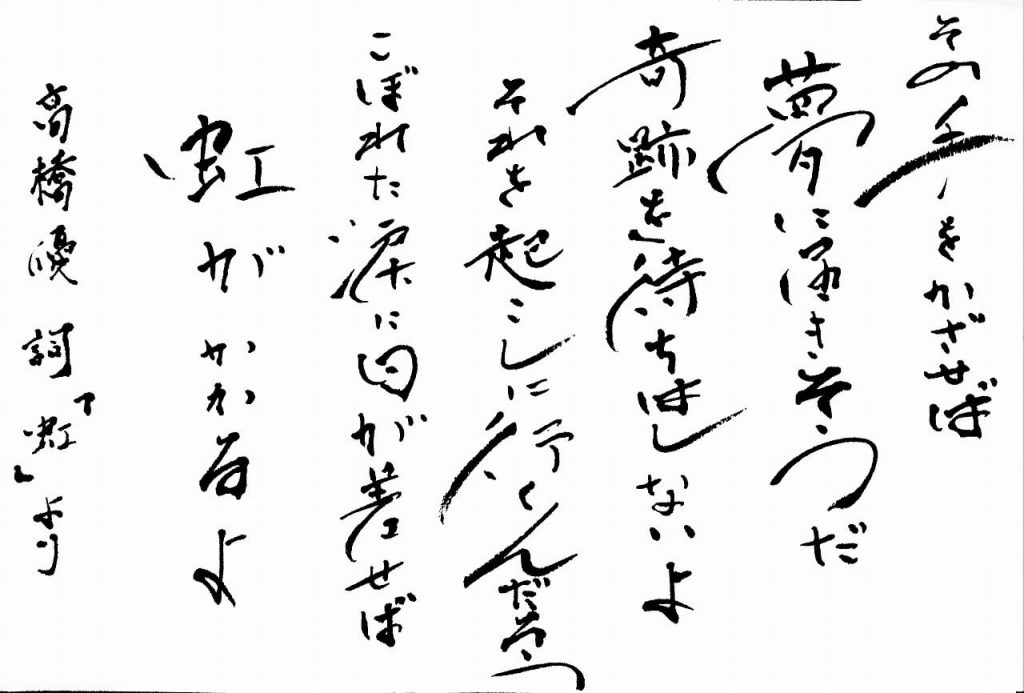 その手をかざせば
夢に届きそうだ
奇跡を待ちはしないよ
それを起こしに行くんだろう
こぼれた涙に日が差せば
虹がかかるよ
高橋優 詞『虹』より